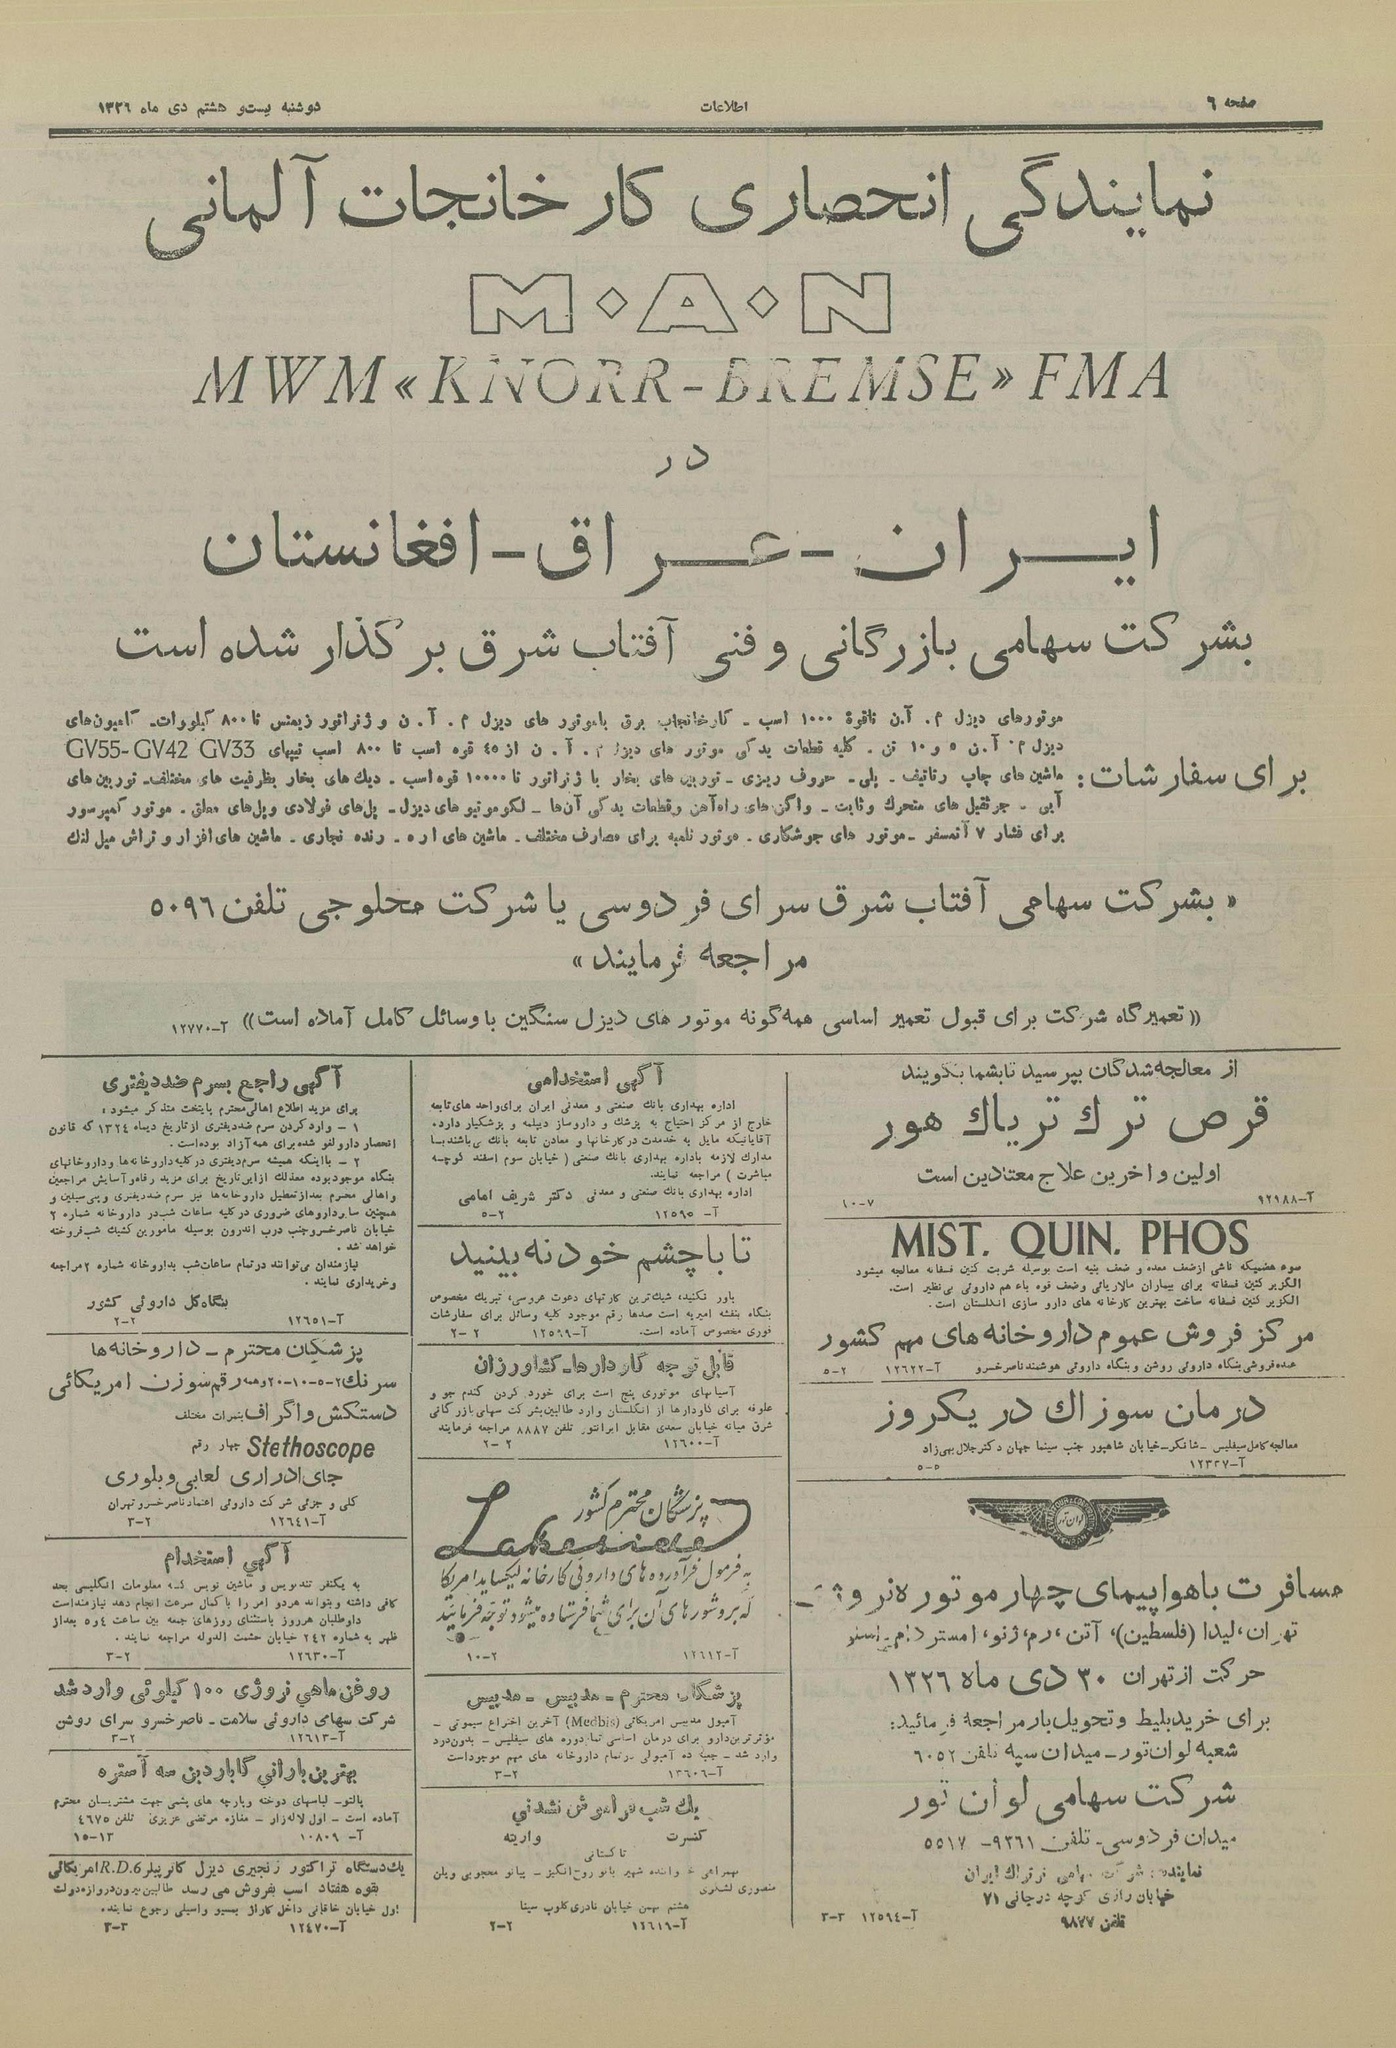 صفحه ٦
اطلاعات
دوشنبه بیست و هشتم دی ماه ۱۳۲٦
نمایندگی انحصاری کارخانجات آلمانی
M·A·N
MWM «KNORR-BREMSE» FMA
در
ایران - عراق - افغانستان
بشرکت سهامی بازرگانی و فنی آفتاب شرق برگذار شده است
برای سفارشات:
موتورهای دیزل م. آ. ن تاقوة ۱۰۰۰ اسب - کارخانجات برق با موتور های دیزل م. آ. ن و ژنراتور زیمنس تا ۸۰۰ کیلووات- کامیون‌های
دیزل م. آ. ن ۵ و ۱۰ تن. کلیه قطعات یدکی موتور های دیزل م. آ. ن از ٤٥ قوه اسب تا ۸۰۰ اسب تیپهای GV55-GV42 GV33
ماشین های چاپ رتاتیف. پلی- حروف ریزی - توربین های بخار با ژنراتور تا ۱۰۰۰۰ قوه اسب. دیک های بخار بظرفیت های مختلف- توربین‌های
آبی - جرثقیل های متحرك و ثابت - واگن‌های راه‌آهن و قطعات یدکی آن‌ها - لکوموتیو های دیزل- پل‌های فولادی و پل‌های معلق. موتور کمپرسور
برای فشار ۷ آتمسفر - موتور های جوشکاری. موتور تلمبه برای مصارف مختلف. ماشین های اره. رنده نجاری. ماشین های افزار و تراش میل لنك
« بشرکت سهامی آفتاب شرق سرای فردوسی یا شرکت محلوجی تلفن ٥٠٩٦
مراجعه فرمایند »
((تعمیرگاه شرکت برای قبول تعمیر اساسی همه‌گونه موتور های دیزل سنگین با وسائل کامل آماده است)) آ-۱۲۷۷۰
از معالجه‌شدگان بپرسید تا بشما بگویند
قرص ترك تریاك هور
اولین و اخرین علاج معتادین است
آ-٩٢٩٨٨ ۷-۱۰
MIST. QUIN. PHOS
سوء هضمیکه ناشی از ضعف معده و ضعف بنیه است بوسیله شربت کنین فسفاته معالجه میشود
الگزیر کنین فسفاته برای بیماران مالاریائی وضعف قوه باء هم داروئی بی‌نظیر است.
الگزیر کنین فسفاته ساخت بهترین کارخانه های دارو سازی انگلستان است.
مرکز فروش عموم داروخانه های مهم کشور
عمده‌فروشی بنگاه داروئی روشن و بنگاه داروئی هوشمند ناصرخسرو آ-۱۲٦۲۲ ۲-۵
درمان سوزاك در یکروز
معالجه کامل سیفلیس - شانکر - خیابان شاهپور جنب سینما جهان دکتر جلال بهی‌زاد
آ-۱۲۳۳۷ ۵-۵
لوان تور
مسافرت باهواپیمای چهارموتوره
تهران، لیدا (فلسطین)، آتن، رم، ژنو، امستردام،
حرکت از تهران ۳۰ دی ماه ۱۳۲٦
برای خرید بلیط و تحویل بار مراجعه فرمائید:
شعبه لوان تور- میدان سپه تلفن ٦٠٥٢
شرکت سهامی لوان تور
میدان فردوسی- تلفن ۹۳٦۱- ۵۵۱۷
نماینده: شرکت سهامی ایران
خیابان رازی کوچه درجانی ۷۱
تلفن ۹۸۷۷
آ-۱۲٥٩٤ ۳-۳
آگهی استخدامی
اداره بهداری بانك صنعتی و معدنی ایران برای واحد های تابعه
خارج از مرکز احتیاج به پزشك و داروساز دیپلمه و پزشکیار دارد.
آقایانیکه مایل به خدمت در کارخانها و معادن تابعه بانك می‌باشند با
مدارك لازمه باداره بهداری بانك صنعتی (خیابان سوم اسفند کوچه
مباشرت) مراجعه نمایند.
اداره بهداری بانك صنعتی و معدنی دکتر شریف امامی
آ- ۱۲٥٩٥ ۲-۵
تا باچشم خود نه بینید
باور نکنید، شیك‌ترین کارتهای دعوت عروسی، تبریك مخصوص
بنگاه بنفشه امیریه است صدها رقم موجود کلیه وسائل برای سفارشات
فوری مخصوص آماده است. آ-۱۲٥٩٩ ۲-۲
قابل توجه گاودارها- کشاورزان
آسیابهای موتوری پنج اسب برای خورد کردن گندم جو و
علوفه برای گاودارها از انگلستان وارد طالبین بشرکت سهامی بازرگانی
شرق میانه خیابان سعدی مقابل ایرانتور تلفن ۸۸۸۷ مراجعه فرمایند
آ-۱۲٦۰۰ ۲-۲
پزشگان محترم کشور
Lakeside
به فرمول فرآورده های داروئی کارخانه لیکساید امریکا
که بروشورهای آن برای شما فرستاده میشود توجه فرمائید
آ-۱۲٦۱۲ ۲-۱۰
پزشگان محترم - مدبیس - مدبیس
آمپول مدبیس امریکائی (Medbis) آخرین اختراع سیموتی -
مؤثرترین دارو برای درمان اساسی تمام دوره های سیفلیس - بدون درد
وارد شد - جعبه ده آمپولی در تمام داروخانه های مهم موجود است
آ-۱۲٦۰٦ ۲-۳
یك شب فراموش نشدنی
کنسرت واریته
تاکستانی
بهمراهی خواننده شهیر بانو روح‌انگیز - پیانو محجوبی ویلن
منصوری
هشتم بهمن خیابان نادری کلوپ سینا
آ-۱۲٦۱۹ ۲-۲
آگهی راجع بسرم ضد دیفتری
برای مزید اطلاع اهالی محترم پایتخت متذکر میشود:
۱ - وارد کردن سرم ضد دیفتری از تاریخ دیماه ۱۳۲٤ که قانون
انحصار دارو لغو شده برای همه آزاد بوده است.
۲ - با اینکه همیشه سرم دیفتری در کلیه داروخانه‌ها و داروخانهای
بنگاه موجود بوده معذلك از این تاریخ برای مزید رفاه و آسایش مراجعین
و اهالی محترم بعد از تعطیل داروخانه‌ها نیز سرم ضد دیفتری و پنی سیلین و
همچنین سایر داروهای ضروری در کلیه ساعات شب در داروخانه شماره ۲
خیابان ناصرخسرو جنب درب اندرون بوسیله مامورین کشیك شب فروخته
خواهد شد.
نیازمندان می‌توانند در تمام ساعات شب بداروخانه شماره ۲ مراجعه
و خریداری نمایند.
بنگاه کل داروئی کشور
آ-۱۲٦۵۱ ۲-۲
پزشکان محترم - داروخانه ها
سرنك ۲-۵-۱۰-۲۰ و همه رقم سوزن امریکائی
دستکش و اگراف بنمرات مختلف
Stethoscope چهار رقم
جای ادراری لعابی و بلوری
کلی و جزئی شرکت داروئی اعتماد ناصرخسرو تهران
آ-۱۲٦٤۱ ۲-۳
آگهی استخدام
به یکنفر تندنویس و ماشین نویس که معلومات انگلیسی بحد
کافی داشته و بتواند هر دو امر را با کمال سرعت انجام دهد نیازمند است
داوطلبان هرروز باستثنای روزهای جمعه بین ساعت ٤ و ۵ بعد از
ظهر به شماره ۲٤۲ خیابان حشمت الدوله مراجعه نمایند.
آ-۱۲٦۳۰ ۲-۳
روغن ماهی نروژی ۱۰۰ کیلوئی وارد شد
شرکت سهامی داروئی سلامت - ناصرخسرو سرای روشن
آ-۱۲٦۱۳ ۲-۳
بهترین بارانی گاباردین سه آستره
پالتو- لباسهای دوخته و پارچه های پشمی جهت مشتریان محترم
آماده است - اول لاله‌زار - مغازه مرتضی عزیزی تلفن ٤٦٧٥
آ- ۱۰۸۰۹ ۱۳-۱۵
یك‌دستگاه تراکتور زنجیری دیزل کاترپیلر R.D.6 امریکائی
بقوه هفتاد اسب بفروش می رسد طالبین بیرون دروازه دولت
اول خیابان خاقانی داخل کاراژ بمسیو واسیلی رجوع نمایند.
آ-۱۲٤۷۰ ۳-۳